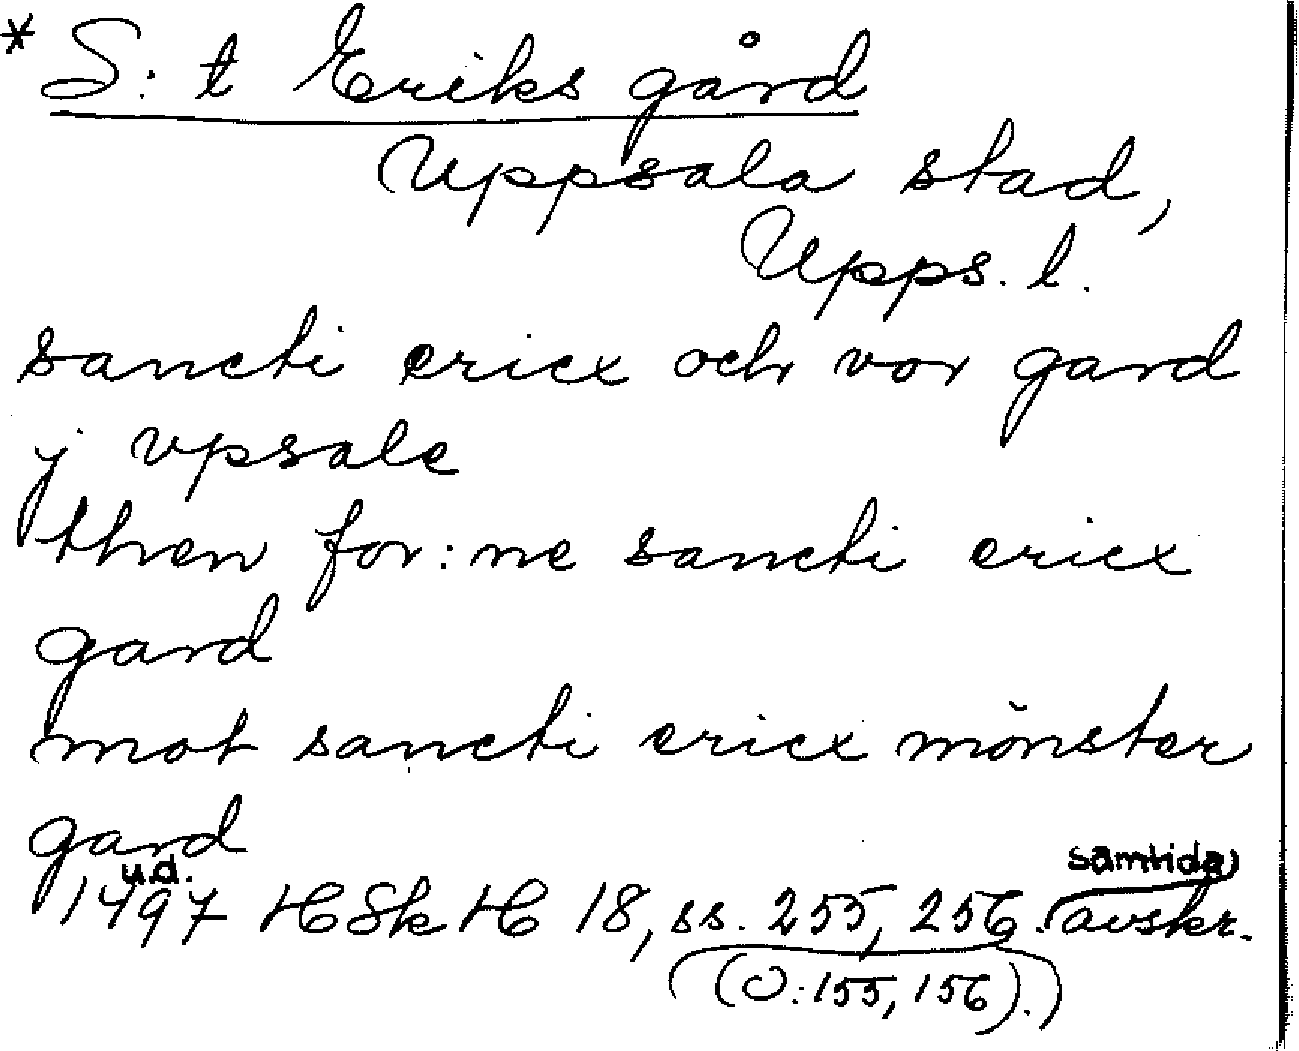 * S:t Eriks gård
Uppsala stad,
Upps. l.
sancti ericx och vor gard
j vpsale
then for:ne sancti ericx
gard
mot sancti ericx mönster
gard
1497 u.d. HSkH 18, ss. 255, 256. samtida avskr.
(O: 155, 156).)